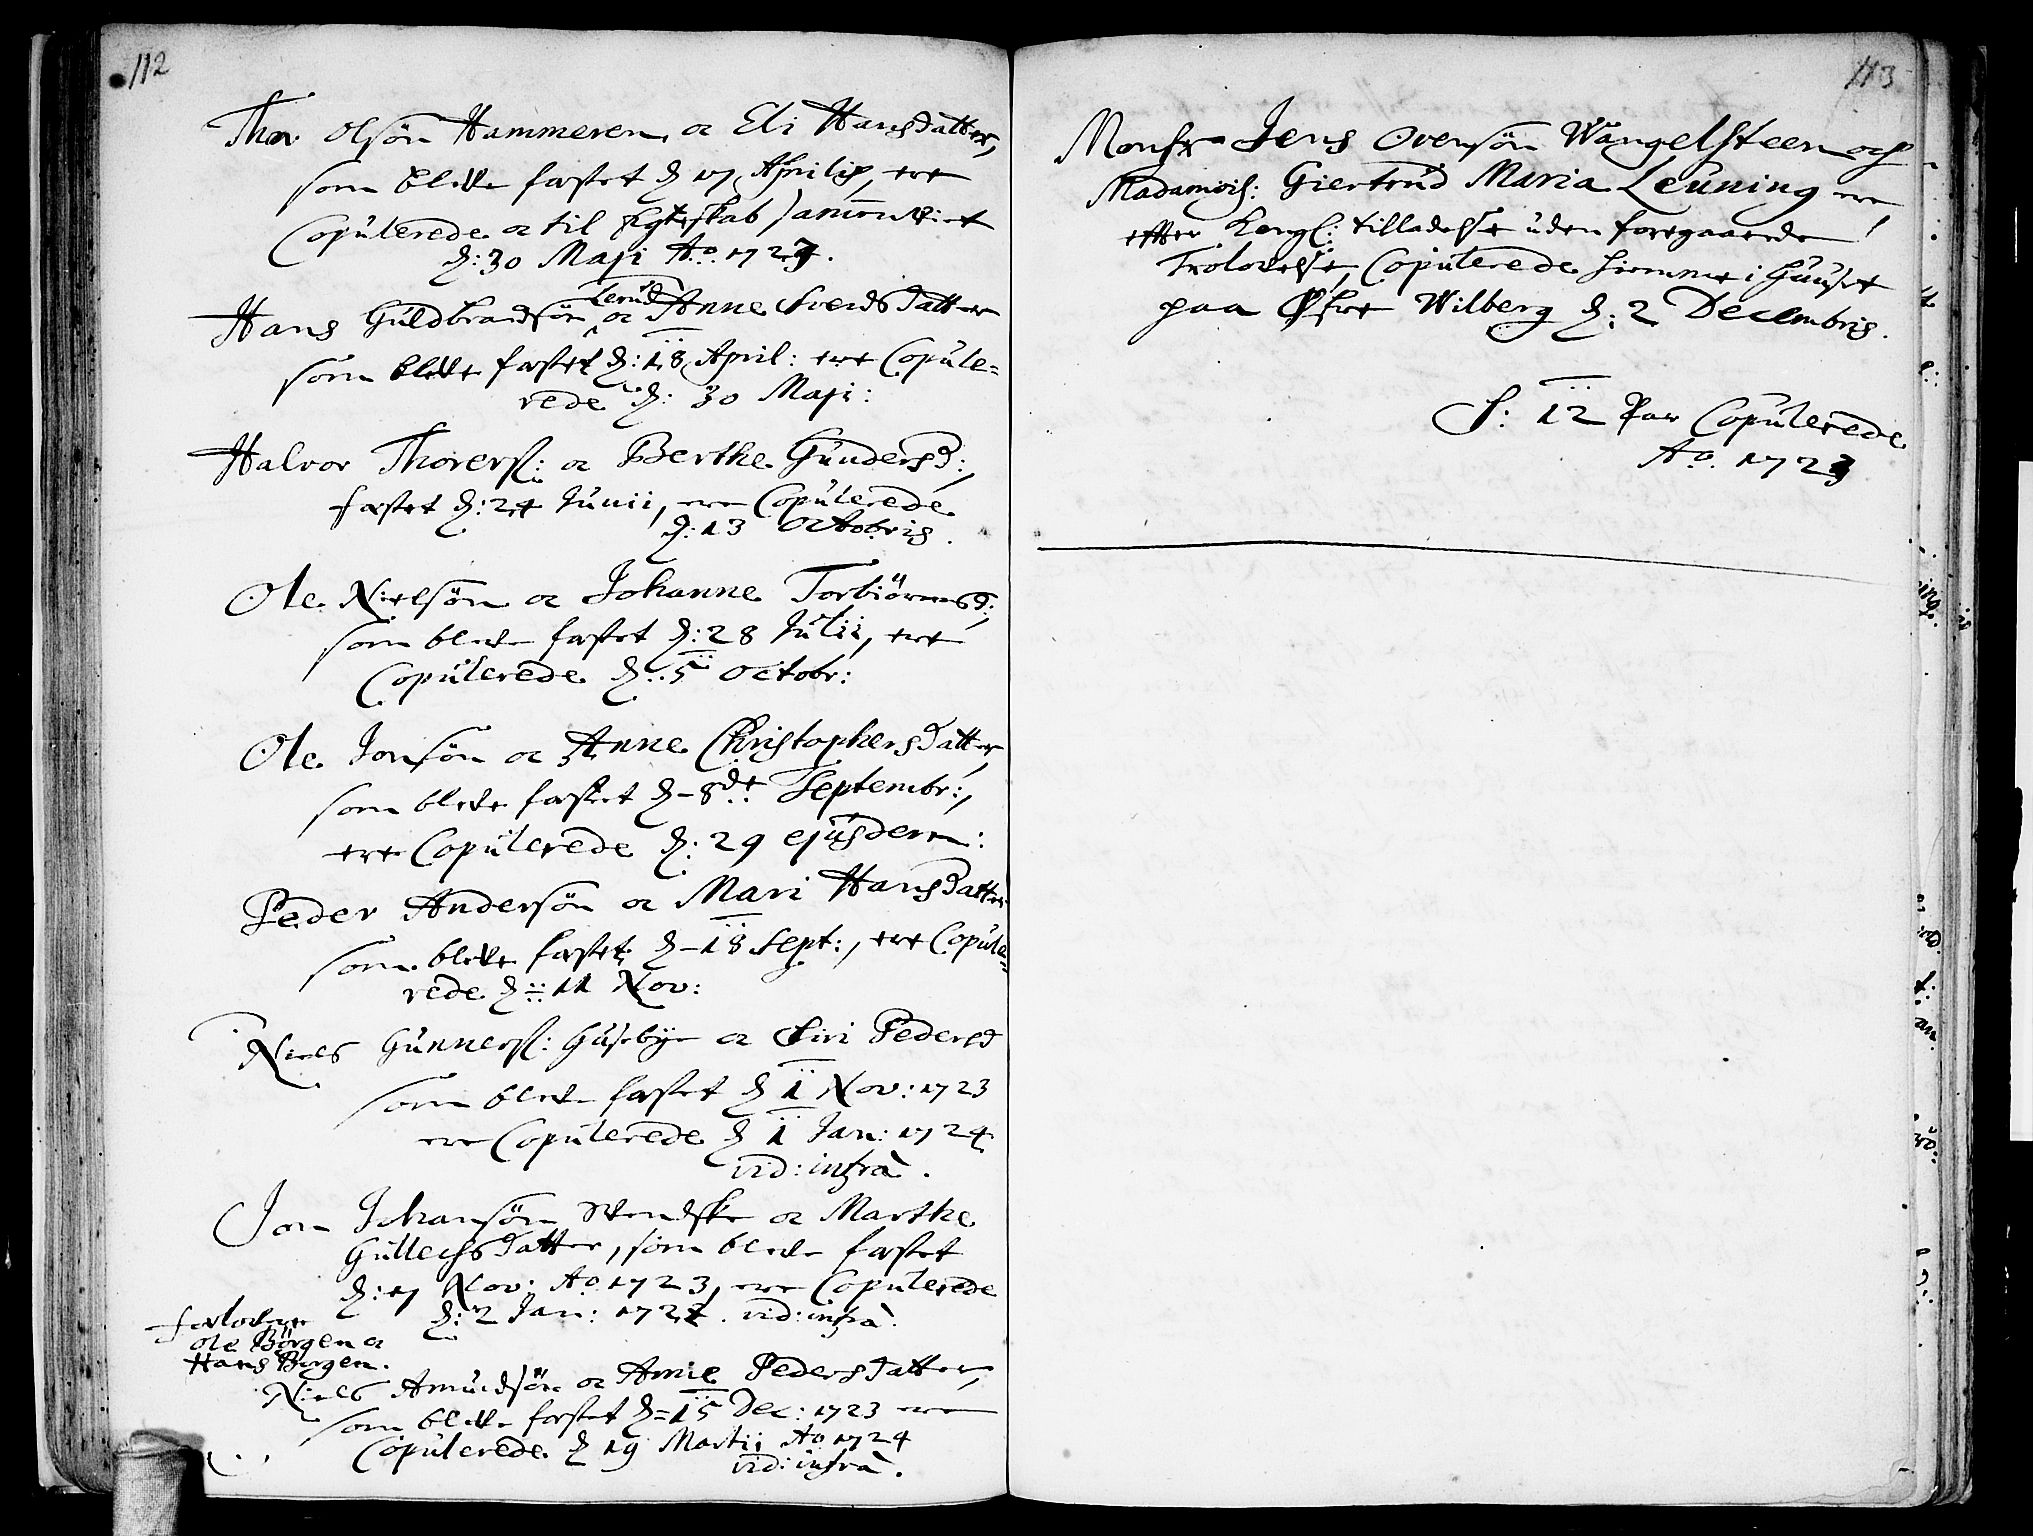 112
Thor Olsön Hammeren oc Eli Hansdatter,
som bleve fæstet d 17 Aprilis, ere
Copulerede oc til Egteskab sammenviet
d: 30 Maji Ao. 1723.
Hans Guldbrandsön Lerud oc Anne Svendsdatter
som bleve fæstet d: 18 April: ere Copule=
rede d: 30 Maji:
Halvor Thorers: oc Berthe Gundersd:,
fæstet d: 24 Junii, ere Copulerede
d: 13 Octobris.
Ole Nielsön oc Johanne Torbiörnsd:,
som bleve fæstet d: 28 Julii, ere
Copulerede d: 5 Octobr:
Ole Jonsön oc Anne Christophersdatter
som bleve fæstet d- 8de Septembr:,
ere Copulerede d: 29 ejusdem:
Peder Andersön oc Mari Hansdatter
som bleve fæstet d- 18 Sept:, ere Copule=
rede d: 11 Nov:
Niels Gunners: Husebye oc Siri Pedersd
som bleve fæstet d 1 Nov: 1723
ere Copulerede d 1 Jan: 1724
vid: infra.
Jon Johansön Svendske oc Marthe
Gullechsdatter, som bleve fæstet
d: 17 Nov: Ao 1723, ere Copulerede
d: 2 Jan: 1724. vid: infra.
forlovere
Ole Börgen oc
Hans Borgen.
Niels Amundsön oc Anne Pedersdatter,
som bleve fæstet d= 15 Dec: 1723 ere
Copulerede d 19 Martii Ao 1724
vid: infra.
113
Monsr Jens Ovensön Wangelsteen och
Madamois: Giertrud Maria Leuning ere
efter Kongl: tilladelse uden foregaaende
Trolovelse, Copulerede hiemme i Huuset
paa Öfre Wilberg d: 2 Decembris.
S: 12 Par Copulerede
Ao. 1723